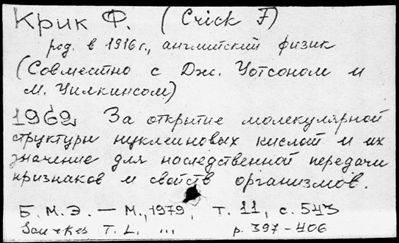 Крик Ф. (Crick F)
род. в 1916 г., английский физик
(Совместно с Дж. Уотсоном и
М. Уилкинсом)
1962 За открытие молекулярной
структуры нуклеиновых кислот и их
значение для наследственной передачи
признаков и свойств организмов.
Б. М. Э. – М., 1979, т. 11, с. 543
T. L. ,,, p. 397-406